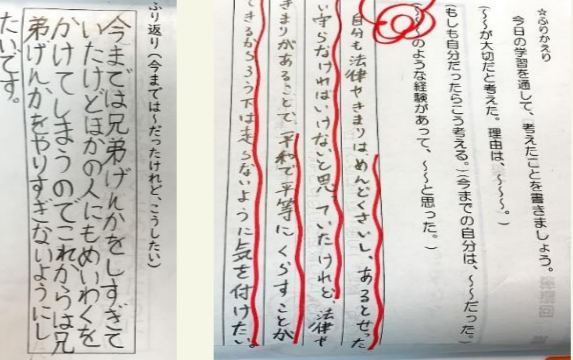 ☆ふりかえり
今日の学習を通して、考えたことを書きましょう。
(～～が大切だと考えた。理由は、～～。)
(もしも自分だったらこう考える。)(今までの自分は、～～だった。)
～～のような経験があって、～～と思った。)
自分も法律やきまりは、めんどくさいし、あるとぜった
い守らなければいけないと思っていたけれど、法律や
きまりがあることで、平和で平等にくらすことが
できるからろう下は走らないように気を付けたい。
ふり返り(今までは～だったけれど、こうしたい)
今までは兄弟げんかをしすぎて
いたけどほかの人にもめいわくを
かけてしまうのでこれからは兄
弟げんかをやりすぎないようにし
たいです。